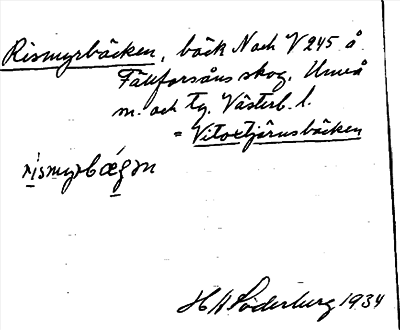 Rismyrbäcken, bäck N och V 245 å
Fällforsåns skog, Umeå
m. och tg. Västerb. l.
= Vitoxtjärnsbäcken
rismyrbægɔn
H A Söderberg 1934